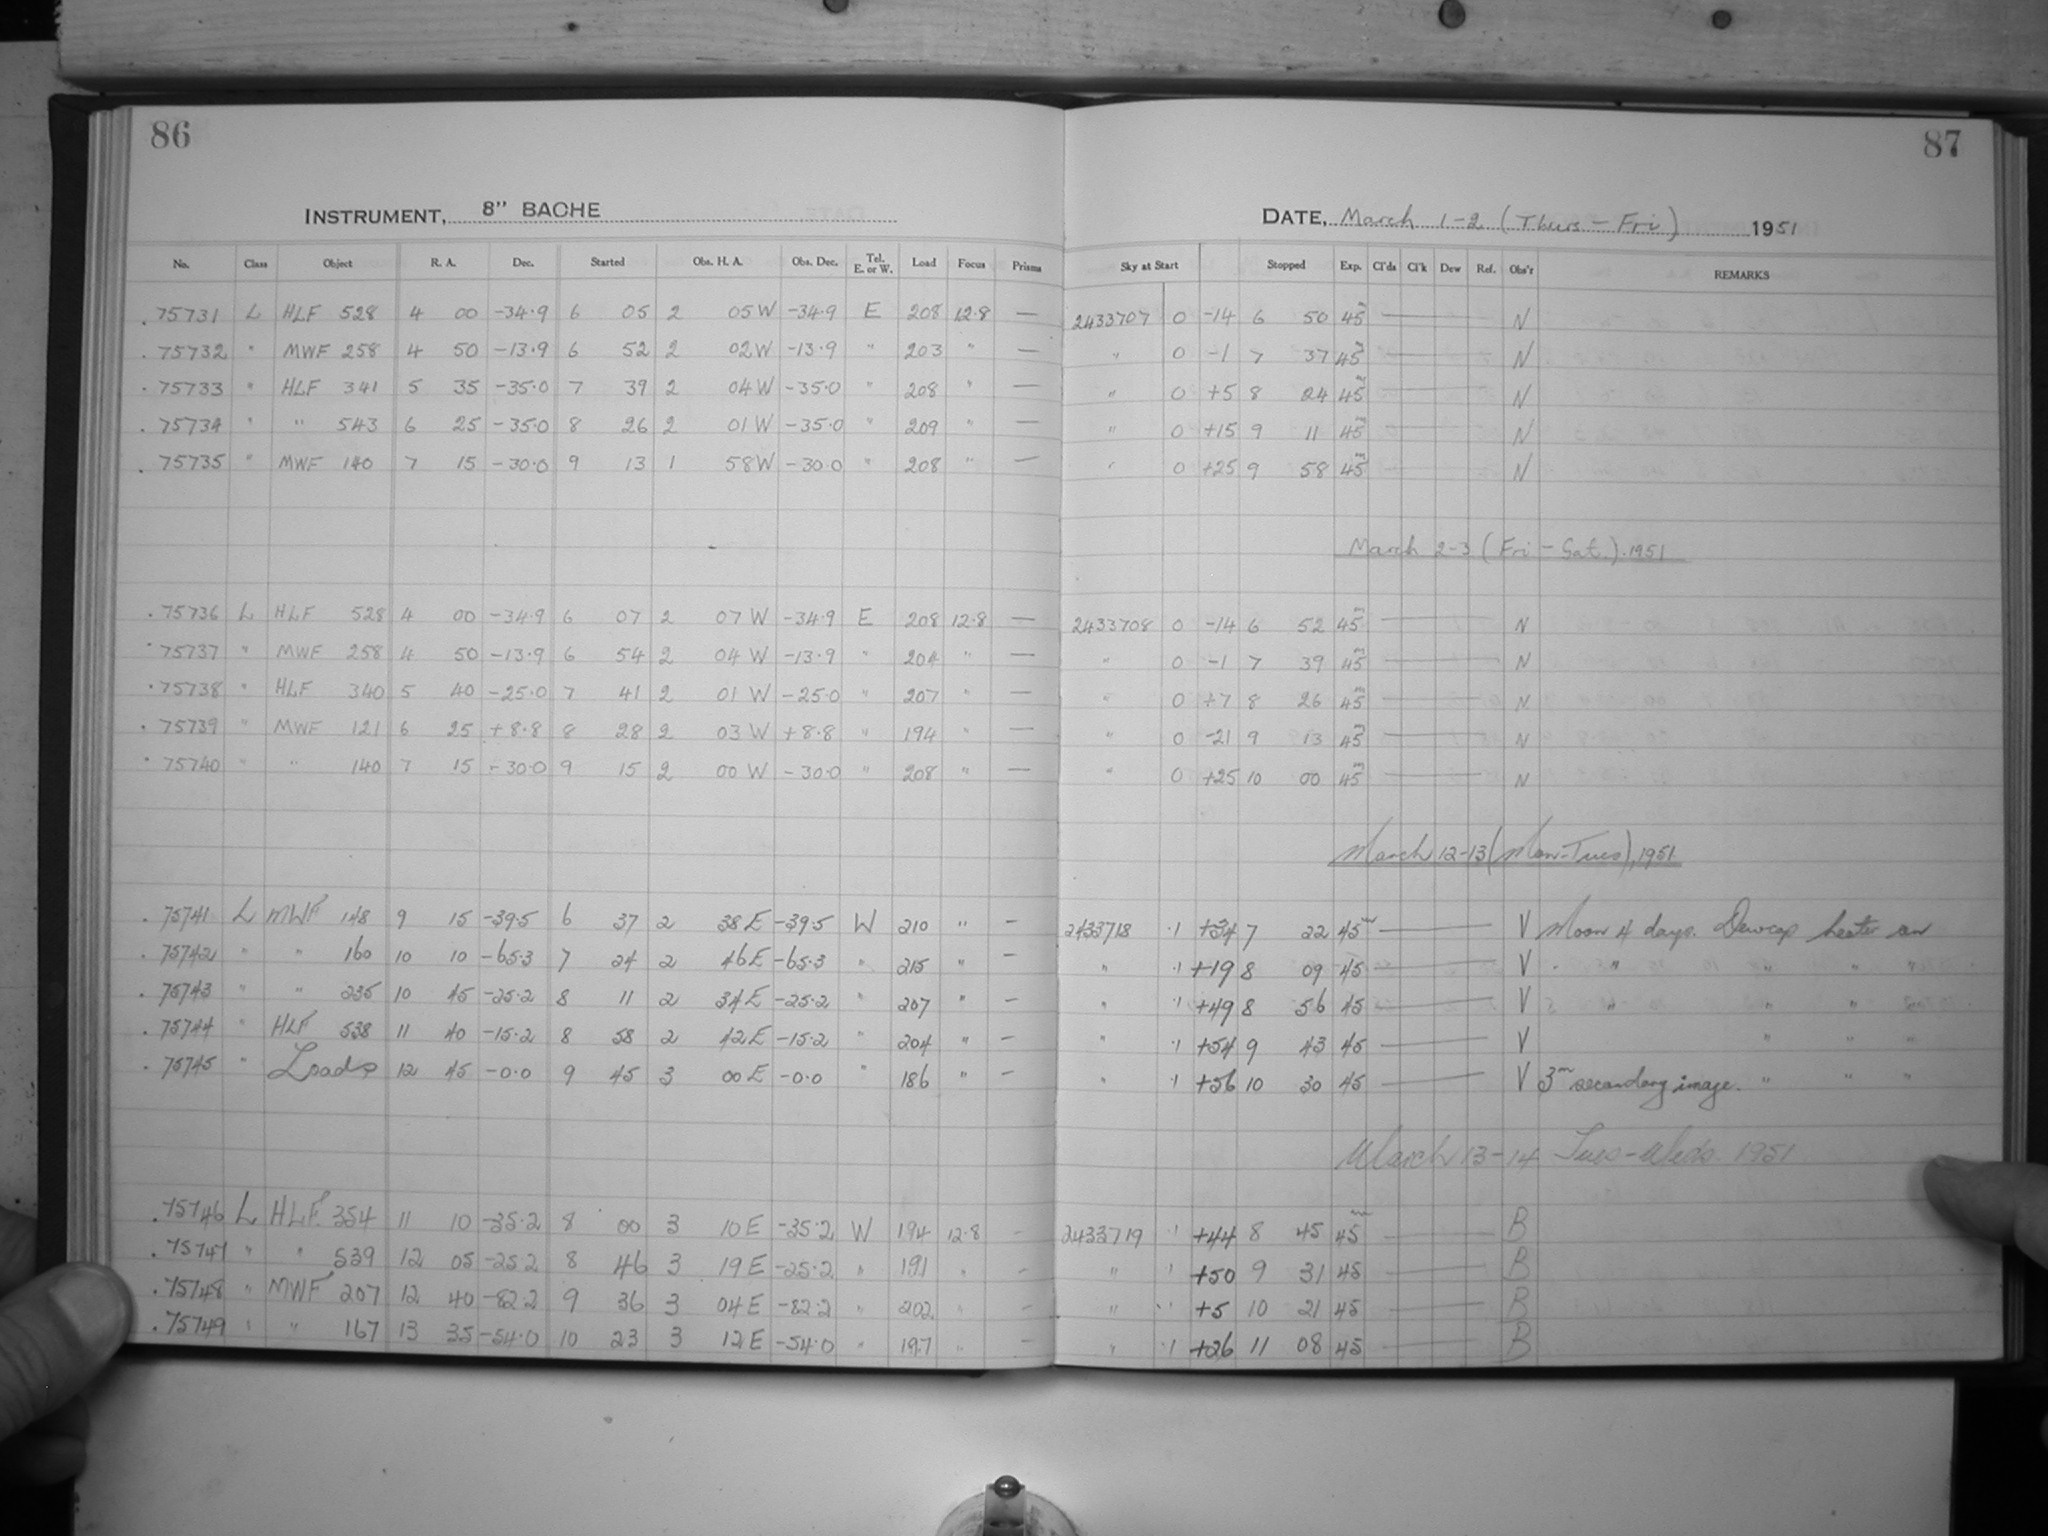 86
INSTRUMENT, 8" BACHE
No. Class Object R. A. Dec. Started Obs. H. A. Obs. Dec. Tel. E. or W. Load Focus Prisms
. 75731 L HLF 528 4 00 -34.9 6 05 2 05 W -34.9 E 208 12.8 —
. 75732 " MWF 258 4 50 -13.9 6 52 2 02 W -13.9 " 203 " —
. 75733 " HLF 341 5 35 -35.0 7 39 2 04 W -35.0 " 208 " —
. 75734 " " 543 6 25 -35.0 8 26 2 01 W -35.0 " 209 " —
. 75735 " MWF 140 7 15 -30.0 9 13 1 58 W -30.0 " 208 " —
. 75736 L HLF 528 4 00 -34.9 6 07 2 07 W -34.9 E 208 12.8 —
. 75737 " MWF 258 4 50 -13.9 6 54 2 04 W -13.9 " 204 " —
. 75738 " HLF 340 5 40 -25.0 7 41 2 01 W -25.0 " 207 " —
. 75739 " MWF 121 6 25 +8.8 8 28 2 03 W +8.8 " 194 " —
. 75740 " " 140 7 15 -30.0 9 15 2 00 W -30.0 " 208 " —
. 75741 L MWF 148 9 15 -39.5 6 37 2 38 E -39.5 W 210 " —
. 75742 " " 160 10 10 -65.3 7 24 2 46 E -65.3 " 215 " —
. 75743 " " 235 10 45 -25.2 8 11 2 34 E -25.2 " 207 " —
. 75744 " HLF 538 11 40 -15.2 8 58 2 42 E -15.2 " 204 " —
. 75745 " Loads 12 45 -0.0 9 45 3 00 E -0.0 " 186 " —
. 75746 L HLF 354 11 10 -35.2 8 00 3 10 E -35.2 W 194 12.8 —
. 75747 " " 539 12 05 -25.2 8 46 3 19 E -25.2 " 191 " —
. 75748 " MWF 207 12 40 -82.2 9 36 3 04 E -82.2 " 202 " —
. 75749 " " 167 13 35 -54.0 10 23 3 12 E -54.0 " 197 " —
87
DATE, March 1-2 (Thurs - Fri) 1951
Sky at Start Stopped Exp. Cl'ds Cl'k Dew Ref. Obs'r REMARKS
2433707 0 -14 6 50 45m — N
" 0 -1 7 37 45m — N
" 0 +5 8 24 45m — N
" 0 +15 9 11 45m — N
" 0 +25 9 58 45m — N
March 2-3 (Fri - Sat.). 1951
2433708 0 -14 6 52 45m — N
" 0 -1 7 39 45m — N
" 0 +7 8 26 45m — N
" 0 -21 9 13 45m — N
" 0 +25 10 00 45m — N
March 12-13 (Mon-Tues), 1951
2433718 .1 +34 7 22 45m — V Moon 4 days. Dewcap heater on
" .1 +19 8 09 45 — V " " " "
" .1 +49 8 56 45 — V " " " "
" .1 +54 9 43 45 — V " " "
" .1 +56 10 30 45 — V 3m secondary image. " " "
March 13-14 Tues-Weds. 1951
2433719 .1 +44 8 45 45m — B
" .1 +50 9 31 45 — B
" .1 +5 10 21 45 — B
" .1 +26 11 08 45 — B